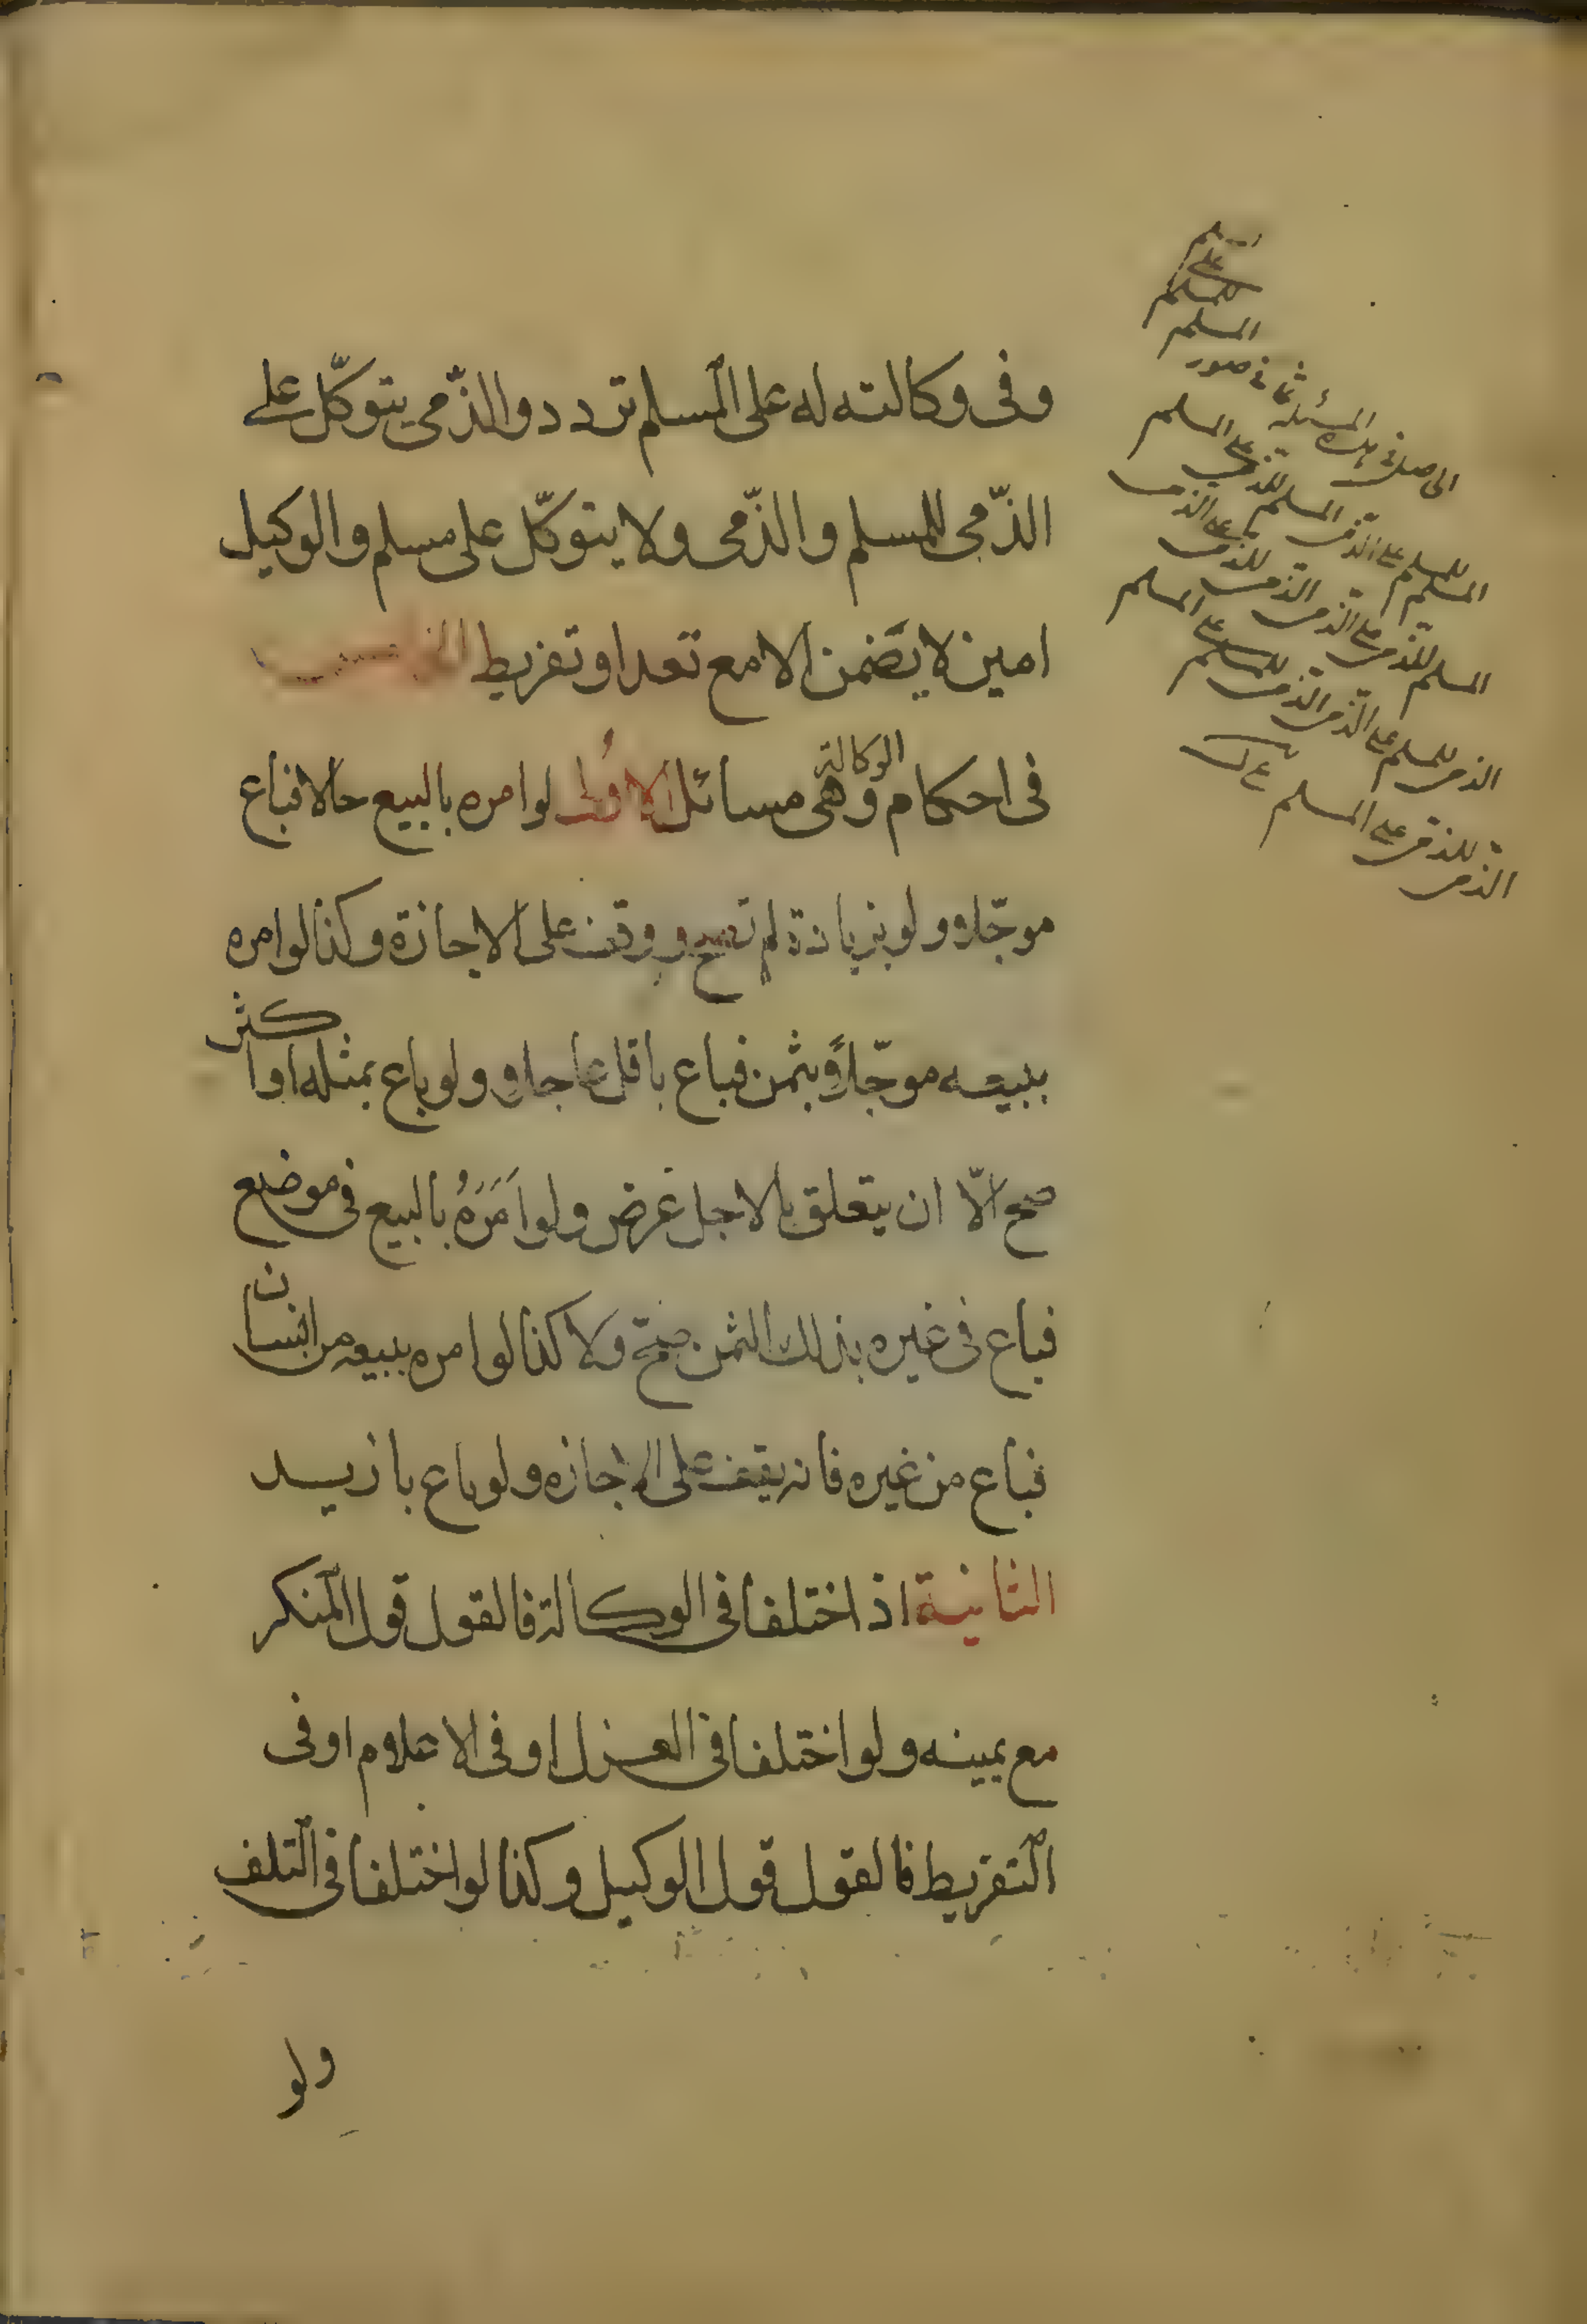 وفى وكالته له على المسلم تردد والذّمى يتوكّل على
الذّمى للمسلم والذّمى ولا يتوكّل على مسلم والوكيل
امين لا يضمن الا مع تعد او تفريط
فى احكام الوكالة وهى مسائل الاولى لو امره بالبيع حالا فباع
موجّلا ولو بزيادة لم تصح ووقف على الاجازة وكذا لو امره
ببيعه موجّلا بثمن فباع باقل عاجلا ولو باع بمثله او اكثر
صح الّا ان يتعلق بالاجل غرض ولو اَمَرَهُ بالبيع فى موضع
فباع فى غيره بذلك الثمن صحّ ولا كذا لو امره ببيعه من انسان
فباع من غيره فانه يقف على الاجازه ولو باع بازيد
الثانية اذ اختلفا فى الوكالة فالقول قول المنكر
مع يمينه ولو اختلفا فى العزل او فى الاعلام او فى
التفريط فالقول قول الوكيل وكذا لو اختلفا فى التلف
ولو
المسلم
للمسلم
على
المسلم
الحاصل فى هذه المسئلة ثمانى صور
المسلم للمسلم على الذمى
المسلم للذمى على المسلم
المسلم للذمى على الذمى
الذمى للذمى على الذمى
الذمى للمسلم على الذمى
الذمى للمسلم على المسلم
الذمى للذمى على المسلم